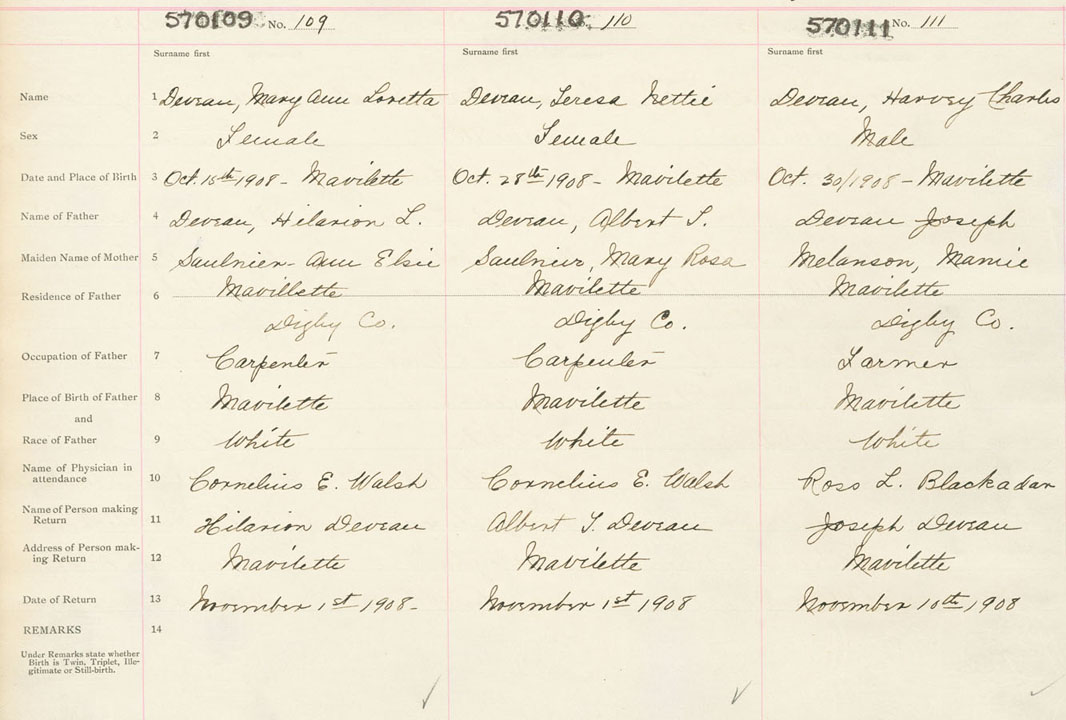 570109 No. 109 570110 110 570111 No. 111
Surname first Surname first Surname first
Name 1 Deveau, Mary Ann Loretta Deveau, Teresa Nettie Deveau, Harvey Charles
Sex 2 Female Female Male
Date and Place of Birth 3 Oct. 15th 1908 - Mavilette Oct. 28th 1908 - Mavilette Oct. 30/1908 - Mavilette
Name of Father 4 Deveau, Hilarion L. Deveau, Albert S. Deveau Joseph
Maiden Name of Mother 5 Saulnier - Ann Elsie Saulnier, Mary Rosa Melanson, Mamie
Residence of Father 6 Mavillette Mavilette Mavilette
Digby Co. Digby Co. Digby Co.
Occupation of Father 7 Carpenter Carpenter Farmer
Place of Birth of Father 8 Mavilette Mavilette Mavilette
and
Race of Father 9 White White White
Name of Physician in
attendance 10 Cornelius E. Walsh Cornelius E. Walsh Ross L. Blackadar
Name of Person making
Return 11 Hilarion Deveau Albert S. Deveau Joseph Deveau
Address of Person mak-
ing Return 12 Mavilette Mavilette Mavilette
Date of Return 13 November 1st 1908 - November 1st 1908 November 10th 1908
REMARKS 14
Under Remarks state whether
Birth is Twin, Triplet, Ille-
gitimate or Still-birth.